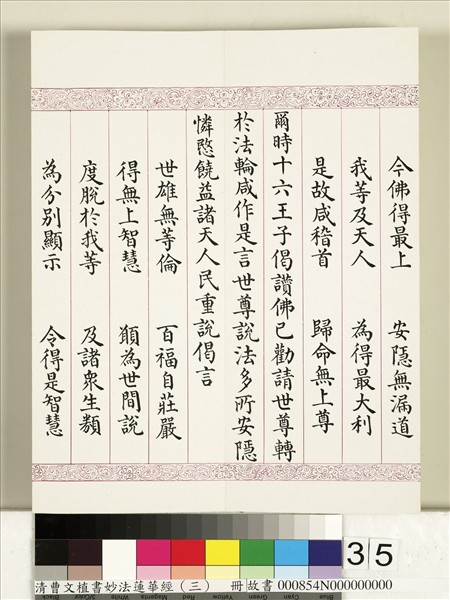 今佛得最上 安隱無漏道
我等及天人 為得最大利
是故咸稽首 歸命無上尊
爾時十六王子偈讚佛已勸請世尊轉
於法輪咸作是言世尊說法多所安隱
憐愍饒益諸天人民重說偈言
世雄無等倫 百福自莊嚴
得無上智慧 願為世間說
度脫於我等 及諸眾生類
為分別顯示 令得是智慧
35
清曹文植書妙法蓮華經(三) 冊 故書 000854N000000000